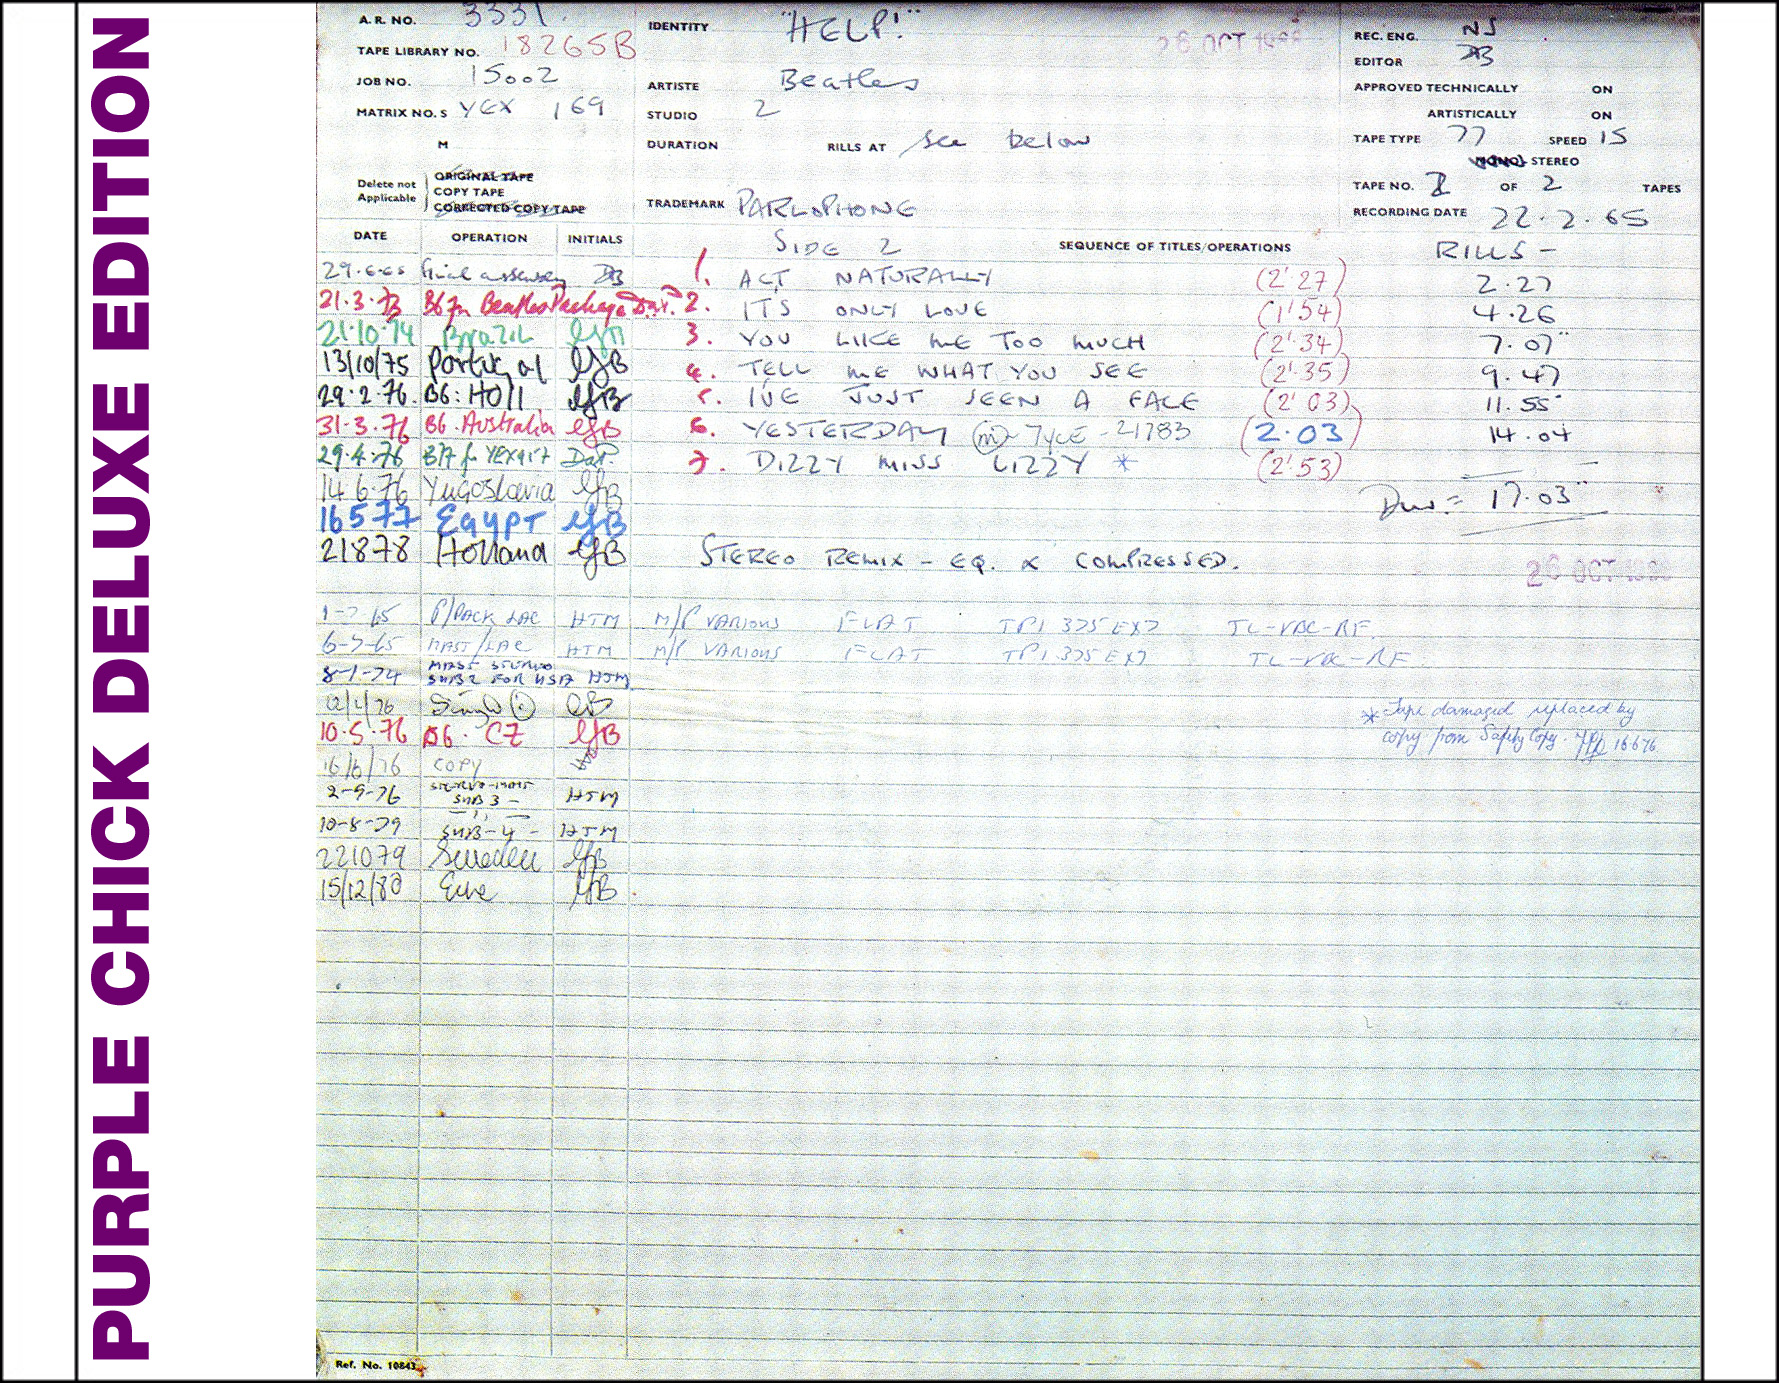 PURPLE CHICK DELUXE EDITION
A.R. NO. 3331.
TAPE LIBRARY NO. 18265B
JOB NO. 15002
MATRIX NO. S YEX 169
M
Delete not Applicable
ORIGINAL TAPE
COPY TAPE
CORRECTED COPY TAPE
IDENTITY "HELP!"
26 OCT
ARTISTE Beatles
STUDIO 2
DURATION RILLS AT see below
TRADEMARK PARLOPHONE
REC. ENG. NS
EDITOR
APPROVED TECHNICALLY ON
ARTISTICALLY ON
TAPE TYPE 77 SPEED 15
MONO STEREO
TAPE NO. 2 OF 2 TAPES
RECORDING DATE 22.2.65
DATE OPERATION INITIALS SIDE 2 SEQUENCE OF TITLES/OPERATIONS RILLS -
29.6.65 final assembly 1. ACT NATURALLY (2'27) 2.27
21.3.73 Beatles Package 2. ITS ONLY LOVE (1'54) 4.26
21.10.74 Brazil 3. YOU LIKE ME TOO MUCH (2'34) 7.07"
13/10/75 Portugal GB 4. TELL ME WHAT YOU SEE (2'35) 9.47
29.2.76. B6: Holl GB 5. I'VE JUST SEEN A FACE (2'03) 11.55"
31-3.76 B6. Australia GB 6. YESTERDAY (m) - 7YCE - 21783 (2.03) 14.04
29.4.76 7. DIZZY MISS LIZZY * (2'53)
14 6.76 Yugoslavia GB Dur. = 17.03"
16577 Egypt GB
21878 Holland GB STEREO REMIX - EQ. & COMPRESSED.
26 OCT
1-7-65 P/PACK LAC HTM M/P VARIOUS FLAT TPI 375 EX7
6-7-65 MAST/LAC HTM M/P VARIOUS FLAT TPI 375 EX7
8-1-74 MAST STEREO SUB 2 FOR USA HTM
12/2/76 GB * Tape damaged replaced by
10.5.76 B6. CZ GB copy from Safety Copy. 16676
16/6/76 COPY
2-9-76 STEREO-MAST SUB 3 - HTM
10-8-79 SUB-4- HTM
221079 Sweden GB
15/12/80 Eire GB
Ref. No. 10843